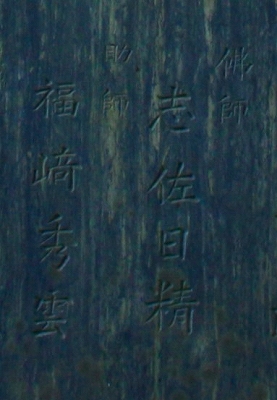 佛師
志佐日精
助師
福﨑秀雲